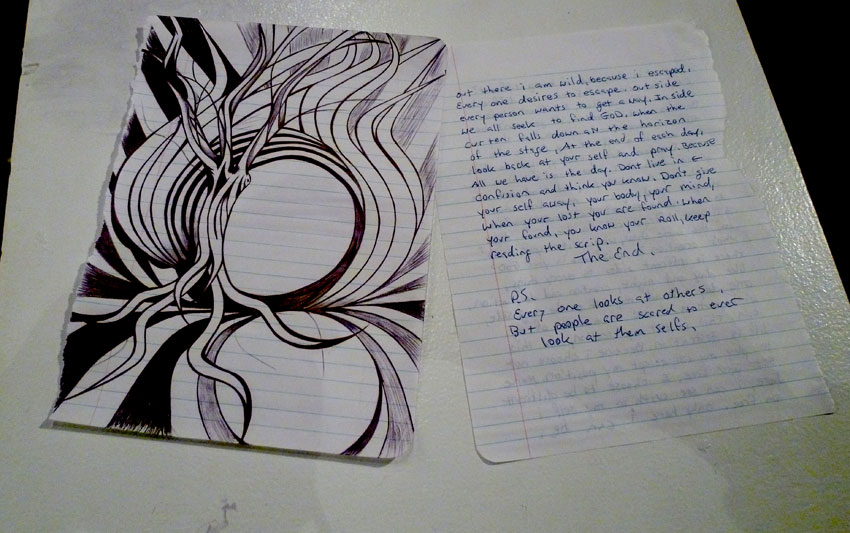 out there i am wild, because i escaped.
Every one desires to escape. out side
every person wants to get a way. In side
we all seek to find GOD, when the
curten falls down on the horizon
of the stage, At the end of each day,
look back at your self and pray. Because
All we have is the day. Dont live in
confusion and think you know. Don't give
your self away, your body, your mind,
when your lost you are found. when
your found, you know your Roll, keep
reading the scrip.
The End.
P.S.
Every one looks at others,
But people are scared to ever
look at them selfs.